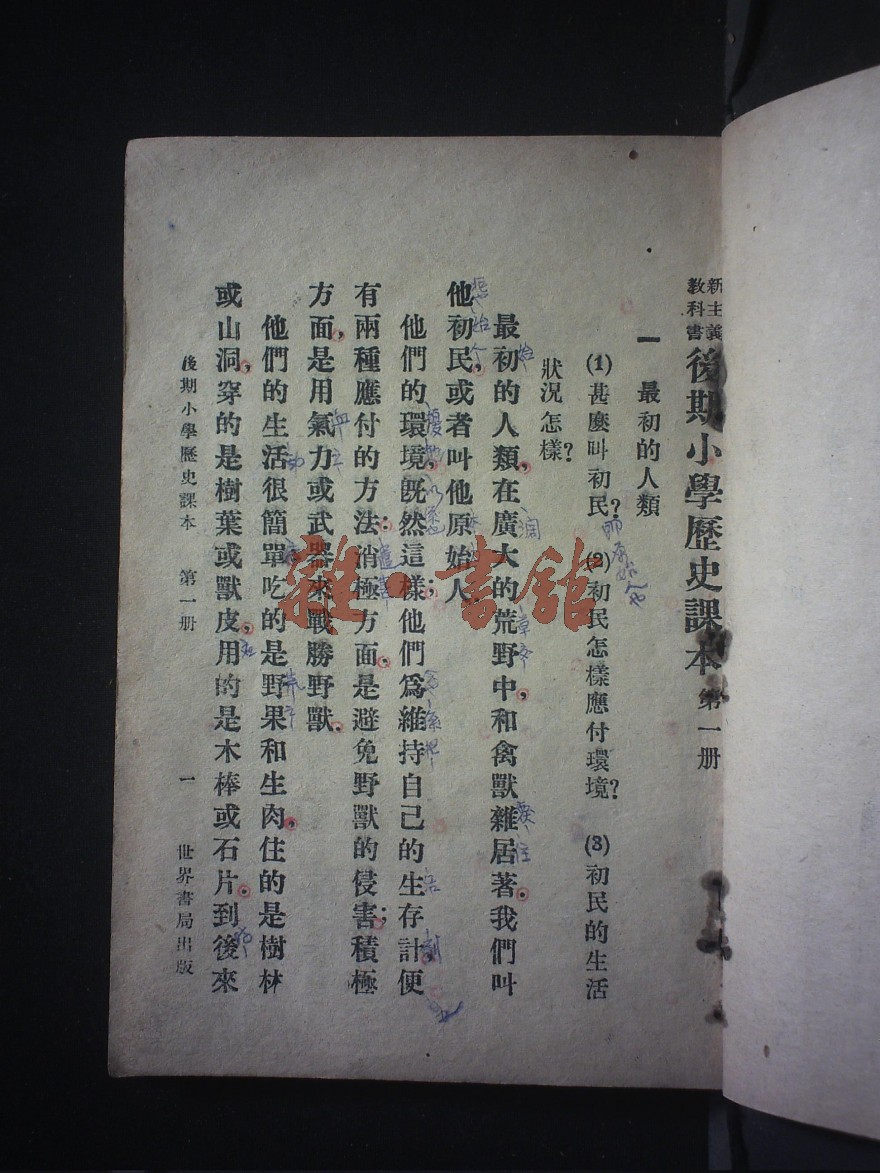 新主義
教科書
後期小學歷史課本 第一册
一 最初的人類
(1)甚麼叫初民? (2)初民怎樣應付環境? (3)初民的生活
狀况怎樣?
最初的人類,在廣大的荒野中,和禽獸雜居著,我們叫
他初民,或者叫他原始人.
他們的環境,既然這樣;他們爲維持自己的生存計,便
有兩種應付的方法:消極方面,是避免野獸的侵害;積極
方面,是用氣力或武器來戰勝野獸.
他們的生活很簡單,吃的是野果和生肉,住的是樹林
或山洞,穿的是樹葉或獸皮,用的是木棒或石片.到後來
後期小學歷史課本 第一册 一 世界書局出版
雜·書館